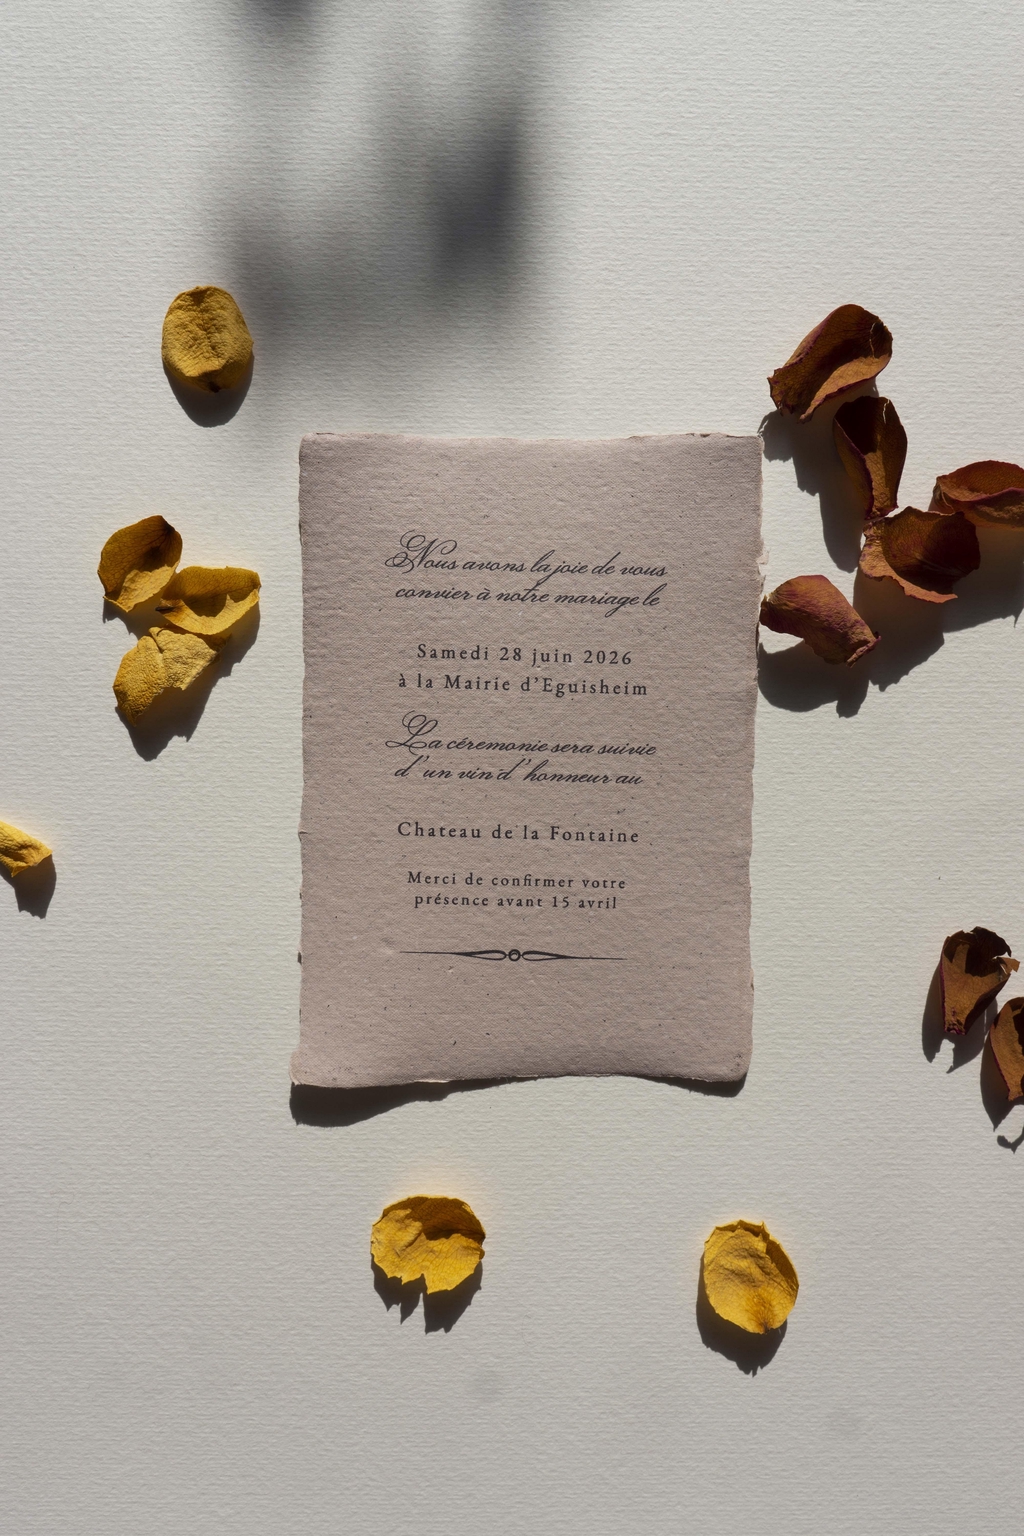 Nous avons la joie de vous
convier à notre mariage le
Samedi 28 juin 2026
à la Mairie d’Eguisheim
La céremonie sera suivie
d’un vin d’honneur au
Chateau de la Fontaine
Merci de confirmer votre
présence avant 15 avril